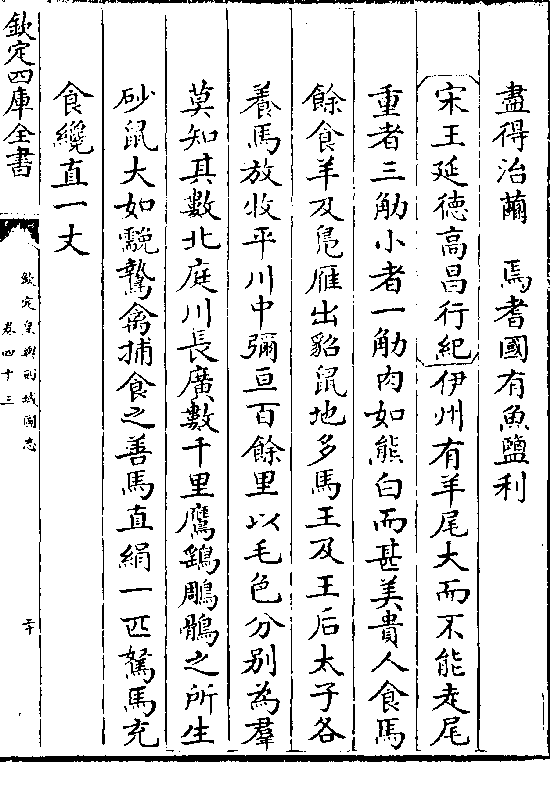 盡得治蘭　焉耆國有魚鹽利
宋王延德高昌行紀伊州有羊尾大而不能走尾
重者三觔小者一觔肉如熊白而甚美貴人食馬
餘食羊及鳧雁出貂鼠地多馬王及王后太子各
養馬放收平川中彌亘百餘里以毛色分别為羣
莫知其數北庭川長廣數千里鷹鷂鵰鶻之所生
砂鼠大如䨲鷙禽捕食之善馬直絹一匹駑馬充
食纔直一丈
欽定四庫全書
欽定皇輿西域圖志
卷四十三
二十